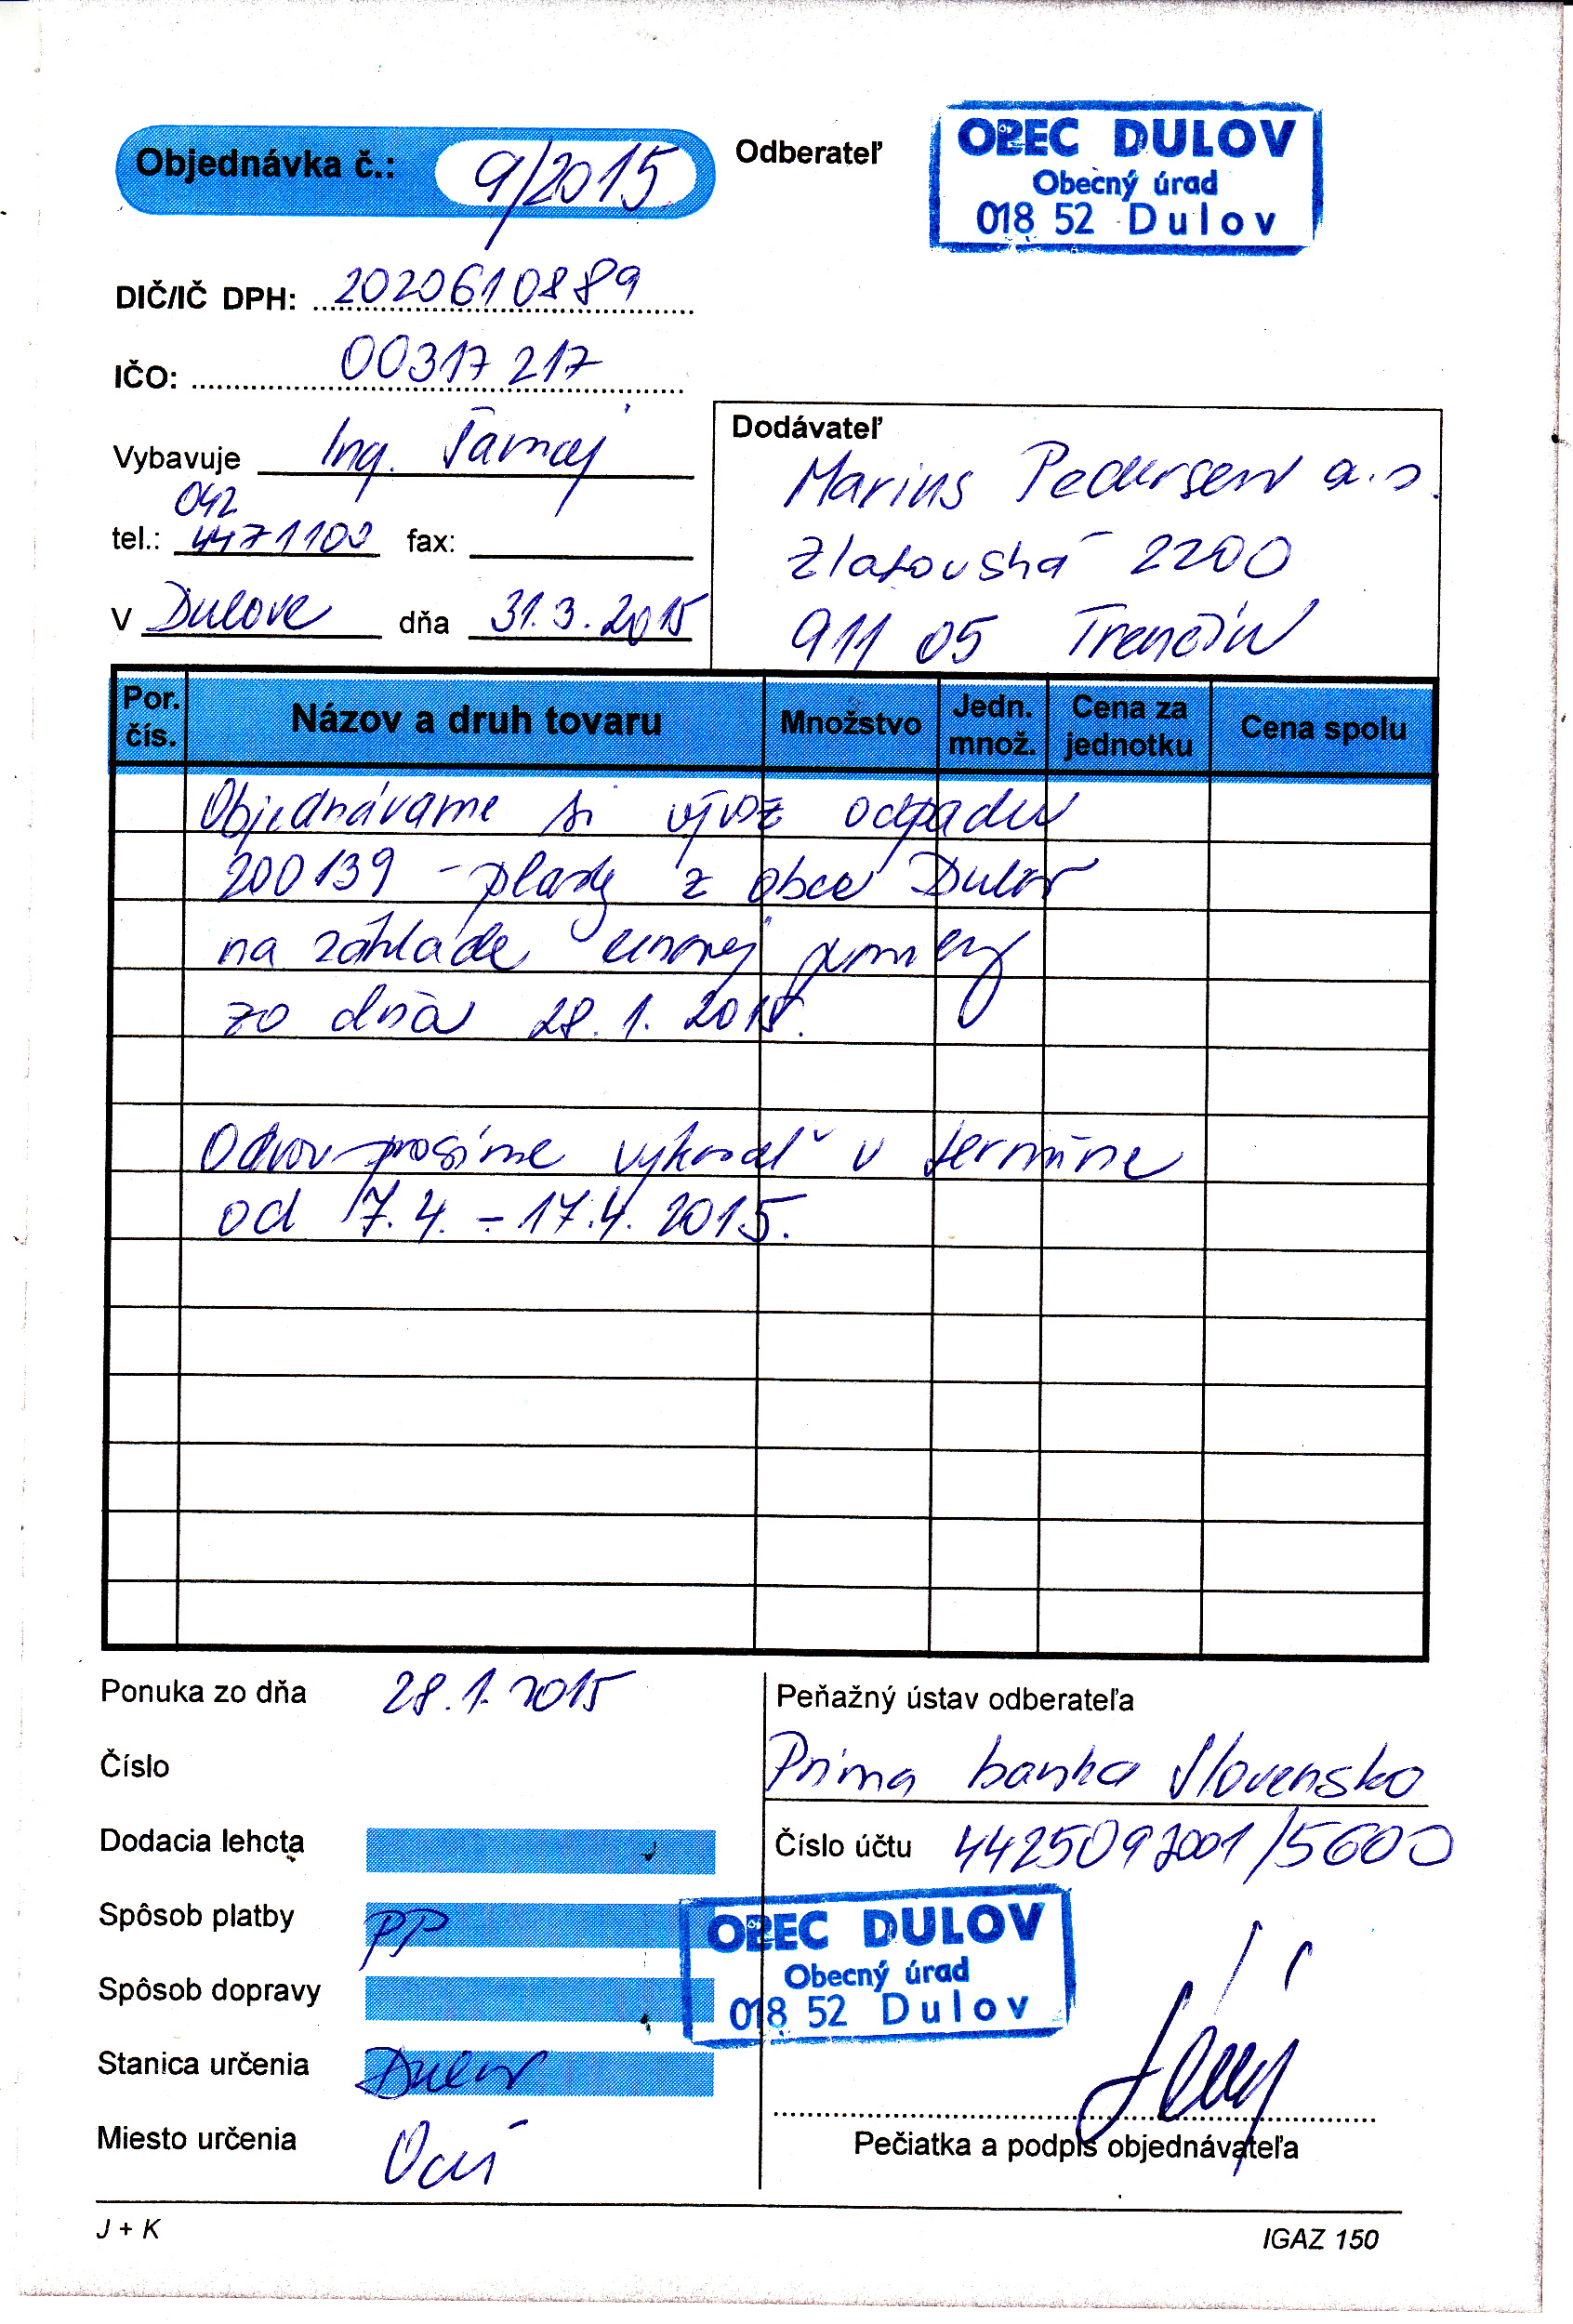 Objednávka č.: 9/2015
Odberateľ
OBEC DULOV
Obecný úrad
018 52 Dulov
DIČ/IČ DPH: 2020610889
IČO: 00317217
Vybavuje Ing.
042
tel.: 4471100 fax:
V Dulove dňa 31.3.2015
Dodávateľ
Marius Pedersen a.s.
Zlatovská 2200
911 05 Trenčín
Por. čís.
Názov a druh tovaru
Množstvo
Jedn. množ.
Cena za jednotku
Cena spolu
Objednávame si vývoz odpadu
200139 - plasty z obce Dulov
na základe ponuky
zo dňa 28.1. 2015.
Odvoz prosíme vykonať v termíne
od 7.4. - 17.4. 2015.
Ponuka zo dňa 28.1.2015
Číslo
Dodacia lehota
Spôsob platby PP
Spôsob dopravy
Stanica určenia Dulov
Miesto určenia OcÚ
Peňažný ústav odberateľa
Prima banka Slovensko
Číslo účtu 4425092001/5600
OBEC DULOV
Obecný úrad
018 52 Dulov
Pečiatka a podpis objednávateľa
J + K
IGAZ 150